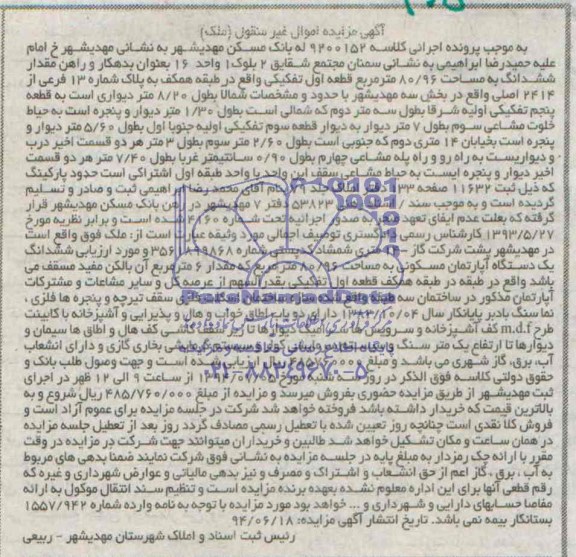 آگهی مزایده اموال غیر منقول (ملک)
به موجب پرونده اجرائی کلاسه ۹۴۰۰۱۵۲ له بانک مسکن مهدیشهر به نشانی مهدیشهر خ امام
علیه حمیدرضا ابراهیمی به نشانی سمنان مجتمع شقایق ۲ بلوک۱ واحد ۱۶ بعنوان بدهکار و راهن مقدار
ششدانگ به مساحت ۸۰/۹۶ مترمربع قطعه اول تفکیکی واقع در طبقه همکف به پلاک شماره ۱۳ فرعی از
۲۴۱۴ اصلی واقع در بخش سه مهدیشهر با حدود و مشخصات شمالا بطول ۸/۲۰ متر دیواری است به قطعه
پنجم تفکیکی اولیه شرقا بطول سه متر دوم که شمالی است بطول ۱/۳۰ متر دیوار و پنجره است به حیاط
خلوت مشاعی سوم بطول ۷ متر دیوار به دیوار قطعه سوم تفکیکی اولیه جنوبا اول بطول ۵/۶۰ متر دیوار و
پنجره است بخیابان ۱۴ متری دوم که جنوبی است بطول ۲/۶۰ متر سوم بطول ۳ متر هر دو قسمت اخیر درب
و دیواریست به راه رو و راه پله مشاعی چهارم بطول ۰/۹۰ سانتیمتر غربا بطول ۷/۴۰ متر هر دو قسمت
اخیر دیوار و پنجره ایست به حیاط مشاعی سقف این واحد با واحد طبقه اول اشتراکی است حدود پارکینگ
که ذیل ثبت ۱۱۶۳۲ صفحه املاک جلد بنام آقای محمدرضا ابراهیمی ثبت و صادر و تسلیم
گردیده است و به موجب سند ۵۳۸۲۳ دفتر ۷ مهدیشهر در رهن بانک مسکن مهدیشهر قرار
گرفته که بعلت عدم ایفای تعهد صدور اجرائیه تحت شماره ۴۸۶۰ شده است و برابر نظریه مورخ
۱۳۹۳/۵/۲۷ کارشناس رسمی دادگستری توصیف اجمالی مورد وثیقه عبارت است از: ملک فوق واقع است
در مهدیشهر پشت شرکت گاز متری شمشاد کدپستی شماره و مورد ارزیابی ششدانگ
یک دستگاه آپارتمان مسکونی به مساحت ۸۰/۹۶ متر مربع که مقدار ۶ مترمربع آن بالکن مفید مسقف می
باشد واقع در طبقه همکف قطعه اول تفکیکی بقدرالسهم از عرصه کل و سایر مشاعات و مشترکات
آپارتمان مذکور در ساختمان سه طبقه سقف تیرچه و پنجره ها فلزی ،
نما سنگ بادبر پایانکار سال ۱۳۸۳/۲۰/۰۴ دارای دو باب اطاق خواب و هال و پذیرایی و آشپزخانه با کابینت
طرح m.d.f کف آشپزخانه و سرویس ها سرامیک دیوارها تا زیر سقف کاشی کف هال و اطاق ها سیمان و
دیوارها تا ارتفاع یک متر سنگ سیستم گرمایشی بخاری گازی و دارای انشعاب
آب، برق، گاز شهری می باشد و مبلغ ریال ارزیابی شده است و جهت وصول طلب بانک و
حقوق دولتی کلاسه فوق الذکر در روز سه شنبه مورخ از ساعت ۹ الی ۱۲ ظهر در اجرای
ثبت مهدیشهر از طریق مزایده حضوری بفروش میرسد و مزایده از مبلغ ۴۸۵/۷۶۰/۰۰۰ ریال شروع و به
بالاترین قیمت که خریدار داشته باشد فروخته خواهد شد شرکت در جلسه مزایده برای عموم آزاد است و
فروش کلا نقدی است چنانچه روز تعیین شده با تعطیل رسمی مصادف گردد روز بعد از تعطیل جلسه مزایده
در همان ساعت و مکان تشکیل خواهد شد طالبین و خریداران میتوانند جهت شرکت در مزایده در وقت
مقرر با ارائه چک رمزدار به مبلغ پایه در جلسه مزایده به نشانی فوق شرکت نمایند ضمنا بدهی های مربوط
به آب ، برق ، گاز اعم از حق انشعاب و اشتراک و مصرف و نیز بدهی مالیاتی و عوارض شهرداری و غیره که
رقم قطعی آنها برای این اداره معلوم نشده بعهده برنده مزایده است و تنظیم سند انتقال موکول به ارائه
مفاصا حسابهای دارایی و شهرداری و ... خواهد بود مورد مزایده با توجه به نامه وارده شماره ۱۵۵۷/۹۴۲
بستانکار بیمه نمی باشد. تاریخ انتشار آگهی مزایده: ۹۴/۰۶/۱۸
رئیس ثبت اسناد و املاک شهرستان مهدیشهر - ربیعی
۰۲۱-۸۸۳۴۹۶۷۰-۵